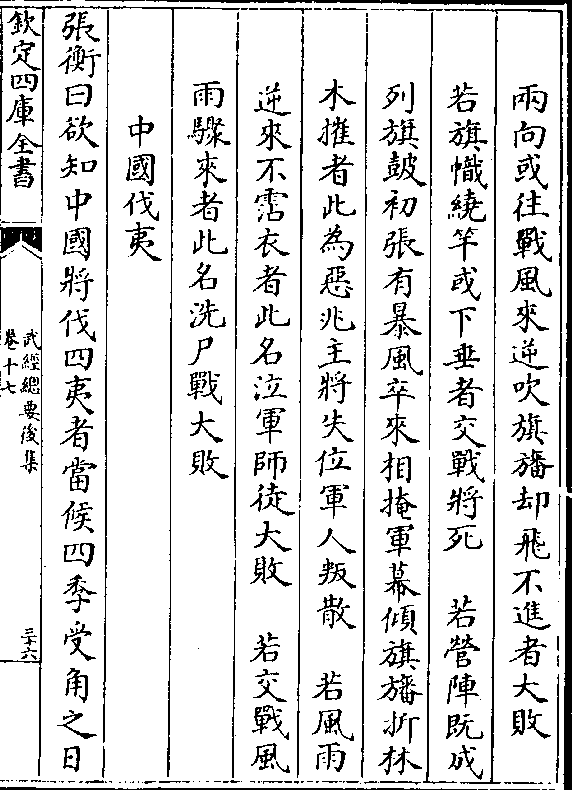 兩向或往戰風來逆吹旗旛却飛不進者大敗
若旗幟繞竿或下垂者交戰將死　若營陣既成
列旗鼓初張有暴風卒來相掩軍幕傾旗旛折林
木摧者此為惡兆主將失位軍人叛散　若風雨
逆來不霑衣者此名泣軍師徒大敗　若交戰風
雨驟來者此名洗尸戰大敗
中國伐夷
張衡曰欲知中國將伐四夷者當候四季受角之日
欽定四庫全書
武經總要後集
卷十七
三十六